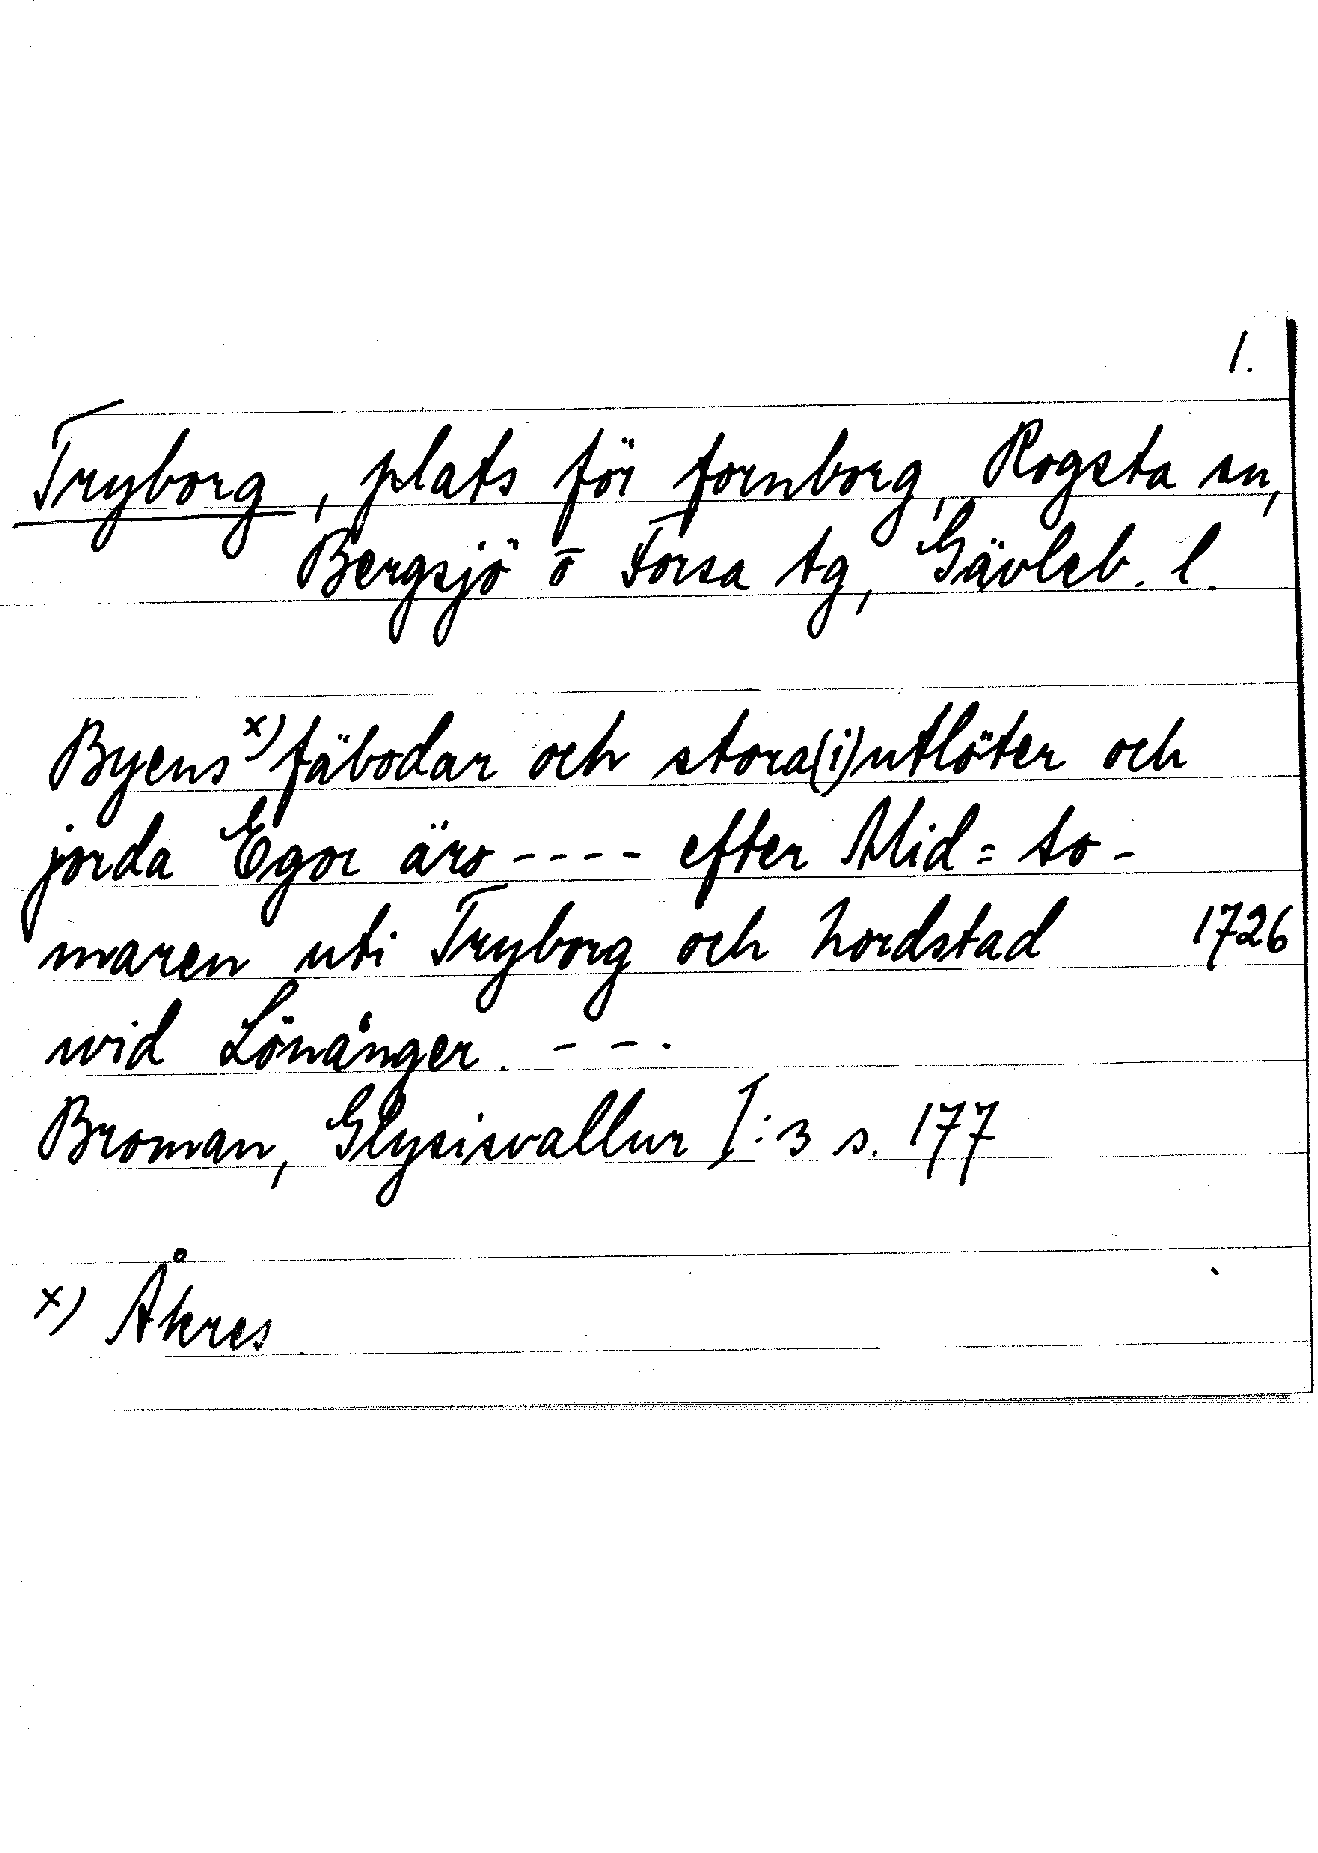 1.
Tryborg, plats för fornborg, Rogsta sn,
Bergsjö o Forsa tg, Gävleb. l.
Byens x) fäbodar och stora(i)utlöter och
jorda Egor äro ---- efter Mid= so-
maren uti Tryborg och Nordstad 1726
wid Lönånger. --.
Broman, Glysisvallur I:3 s. 177
x) Åkres